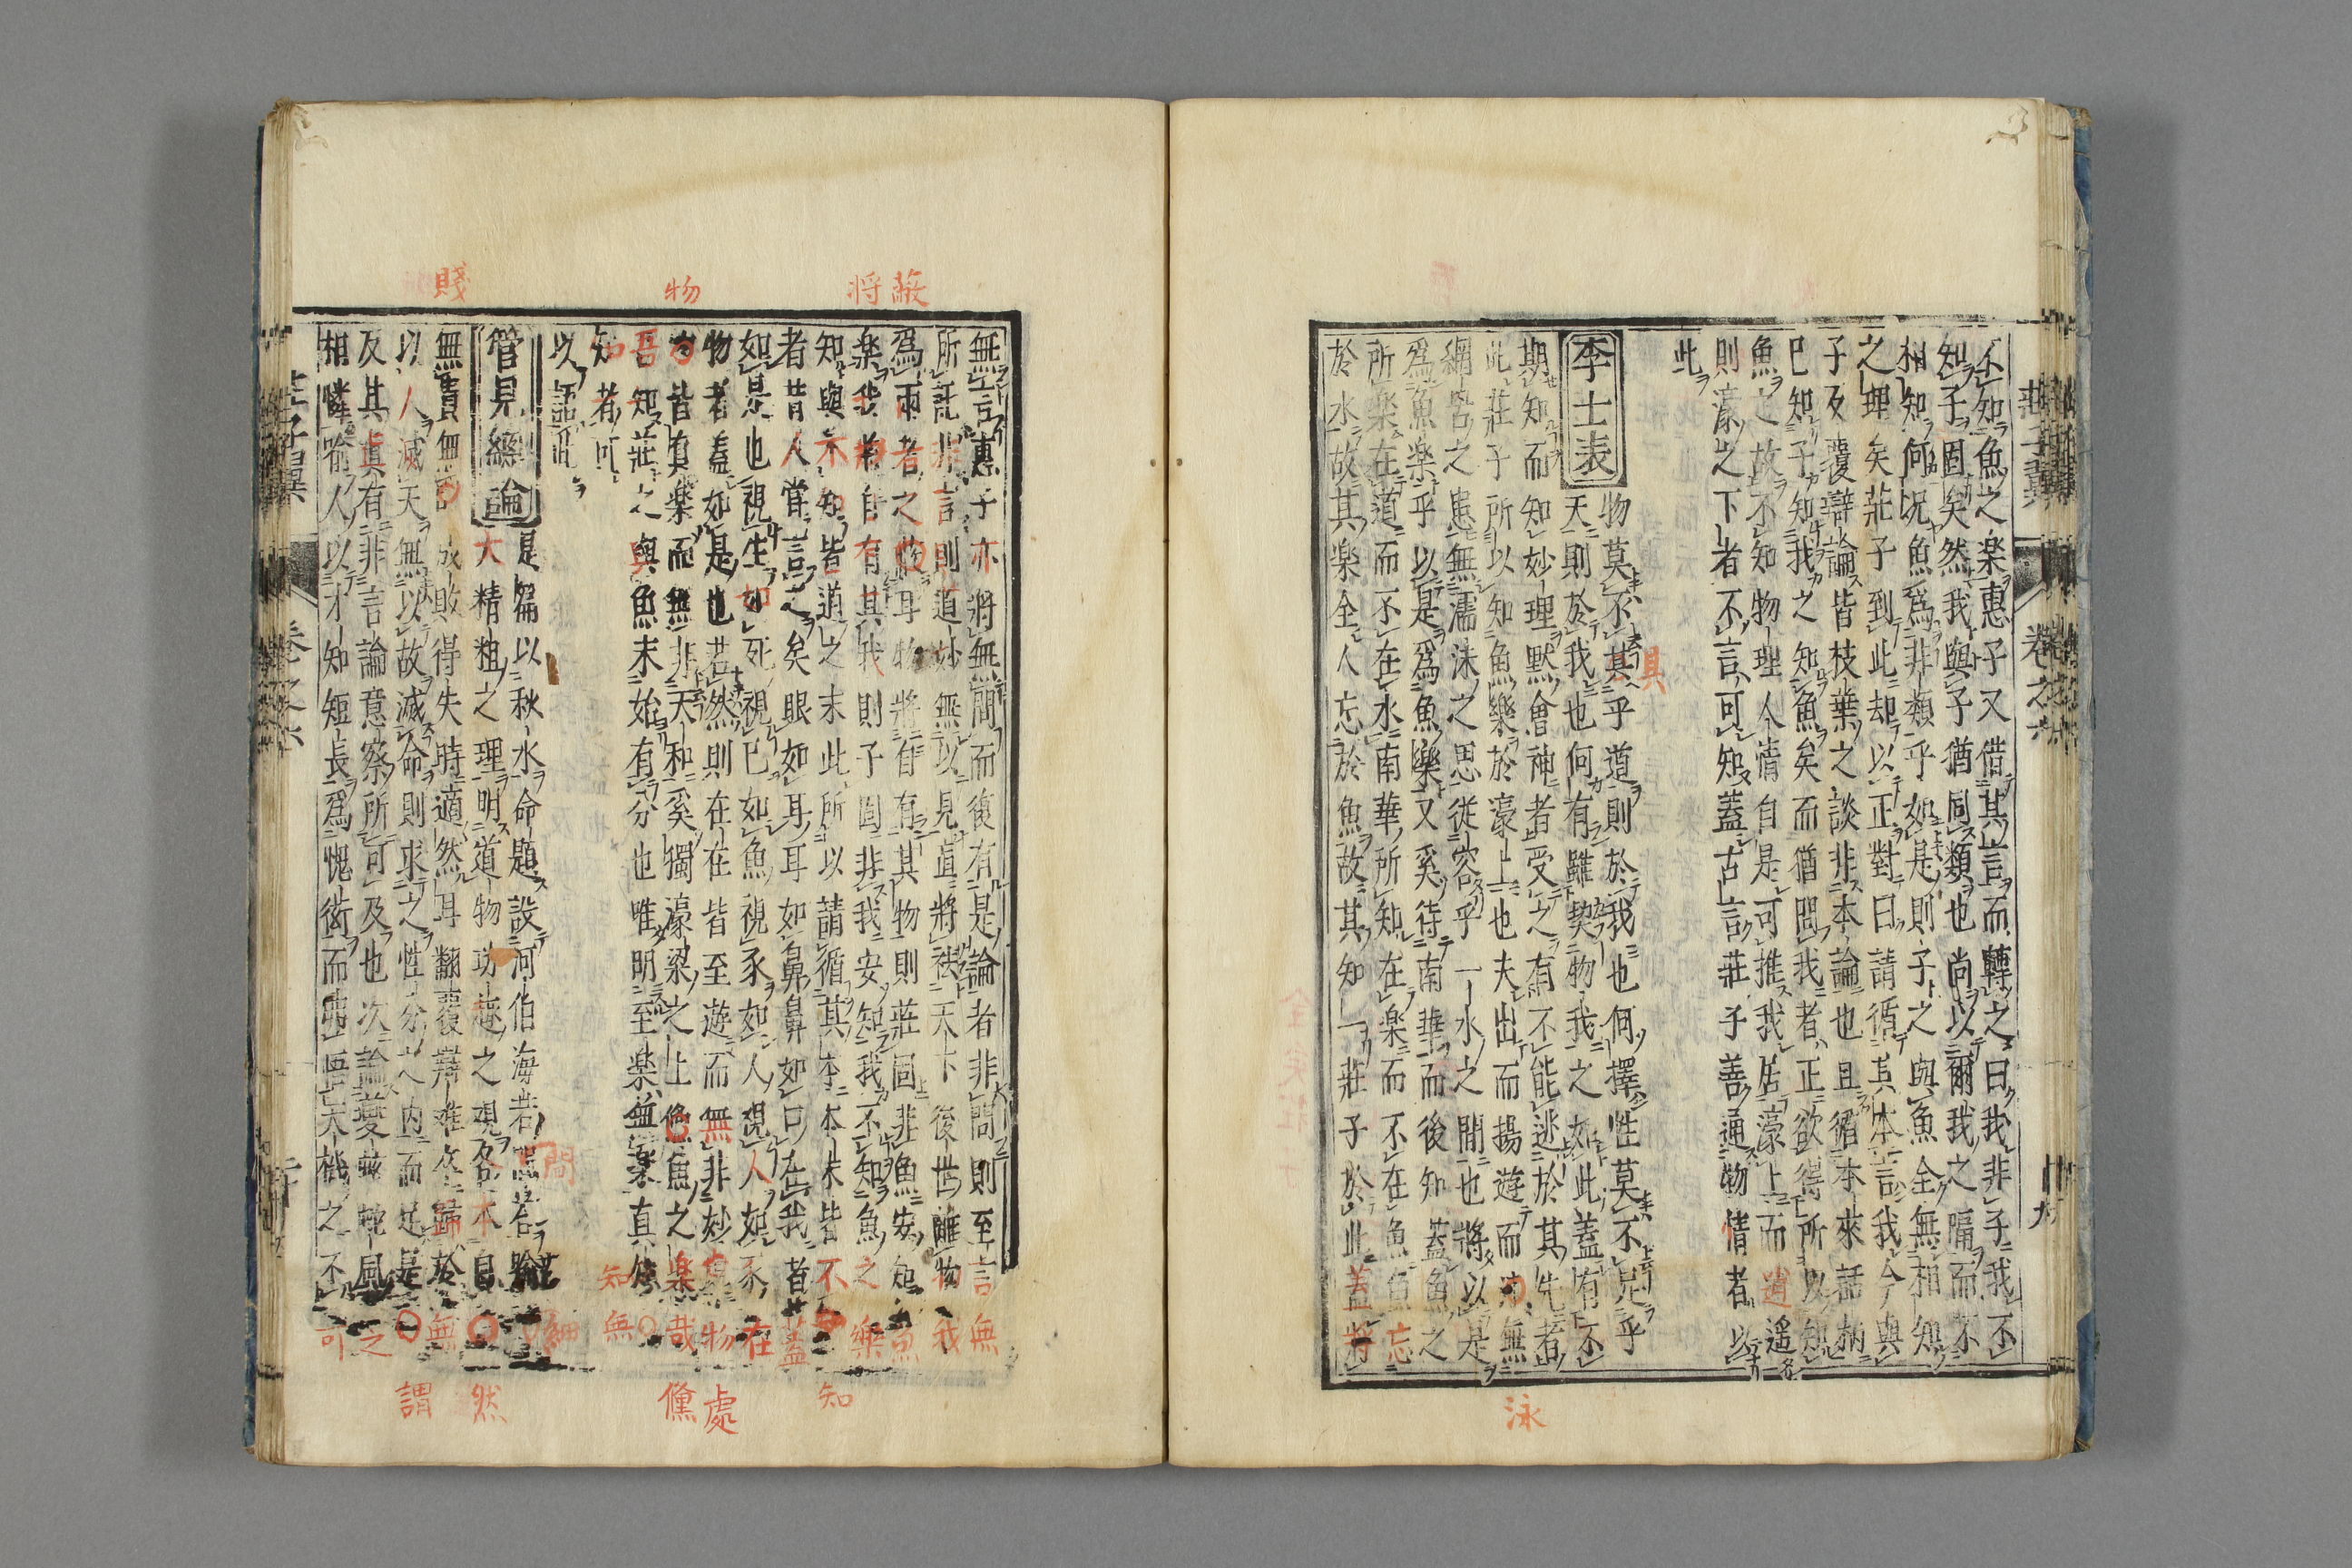 莊子翼 卷之六 廿九
不知魚之楽惠子又借其言而轉之曰我非子我不
知子固矣然我與子猶同類也尚以爾我之隔而不
相知何况魚爲非類乎如是則子之與魚全無相知
之理矣莊子到此却以正對曰請循其本言我今與
子反覆辯論皆枝葉之談非本論也且循本來話柄
巳知子知我之知魚矣而猶問我者正欲得所以知
魚之故不知物理人情自是可推我居濠上而逍遥
則濠之下者不言可知蓋古言莊子善通物情者以
此
李士表 物莫不具乎道則於我也何擇性莫不足乎
天則於我也何有雖契物我之如此蓋有不
期知而知妙理默會神者受之有不能逃於其先者
此莊子所以知魚樂於濠上也夫出而揚遊而泳無
網罟之患無濡沫之思從容乎一水之間也將以是
爲魚楽乎以是爲魚樂又奚待南華而後知蓋魚之
所楽在道而不在水南華所知在楽而不在魚魚忘
於水故其楽全人忘於魚故其知一莊子於此蓋將
無言惠子亦將無問而復有是論者非問則至言無
所託非言則道妙無以見直將祛天下後世離物我
爲兩者之蔽耳物將自有其物則莊固非魚安知魚
楽我將自有其我則子固非我安知我不知魚之樂
知與不知皆道之末此所以請循其本本未皆不知
者昔人嘗言之矣眼如耳耳如鼻鼻如口在我者蓋
如是也視生如死視巳如魚視豕如人視人如豕在
物者蓋如是也若然則在在皆至遊而無非妙處物
物皆真楽而無非天和奚獨濠梁之上鯈魚之楽哉
吾知莊之與魚未始有分也唯明至楽無楽真知無
知者可
以語此
管見總論 是篇以秋水命題設河伯海若問答喻細
大精粗之理明道物功趣之觀各本自然
無貴無賤 成敗得失時適然耳翻覆辯難卒歸於無
以人滅天無以故滅命則求之性分之内而足是謂
及其真有非言論意察所可及也次論夔蚿蛇風之
相憐喻人以才知短長爲愧衒而弗悟天機之不可
莊子翼 卷之六
蔽
將
物
賤
泳
知
處
儻
然
謂